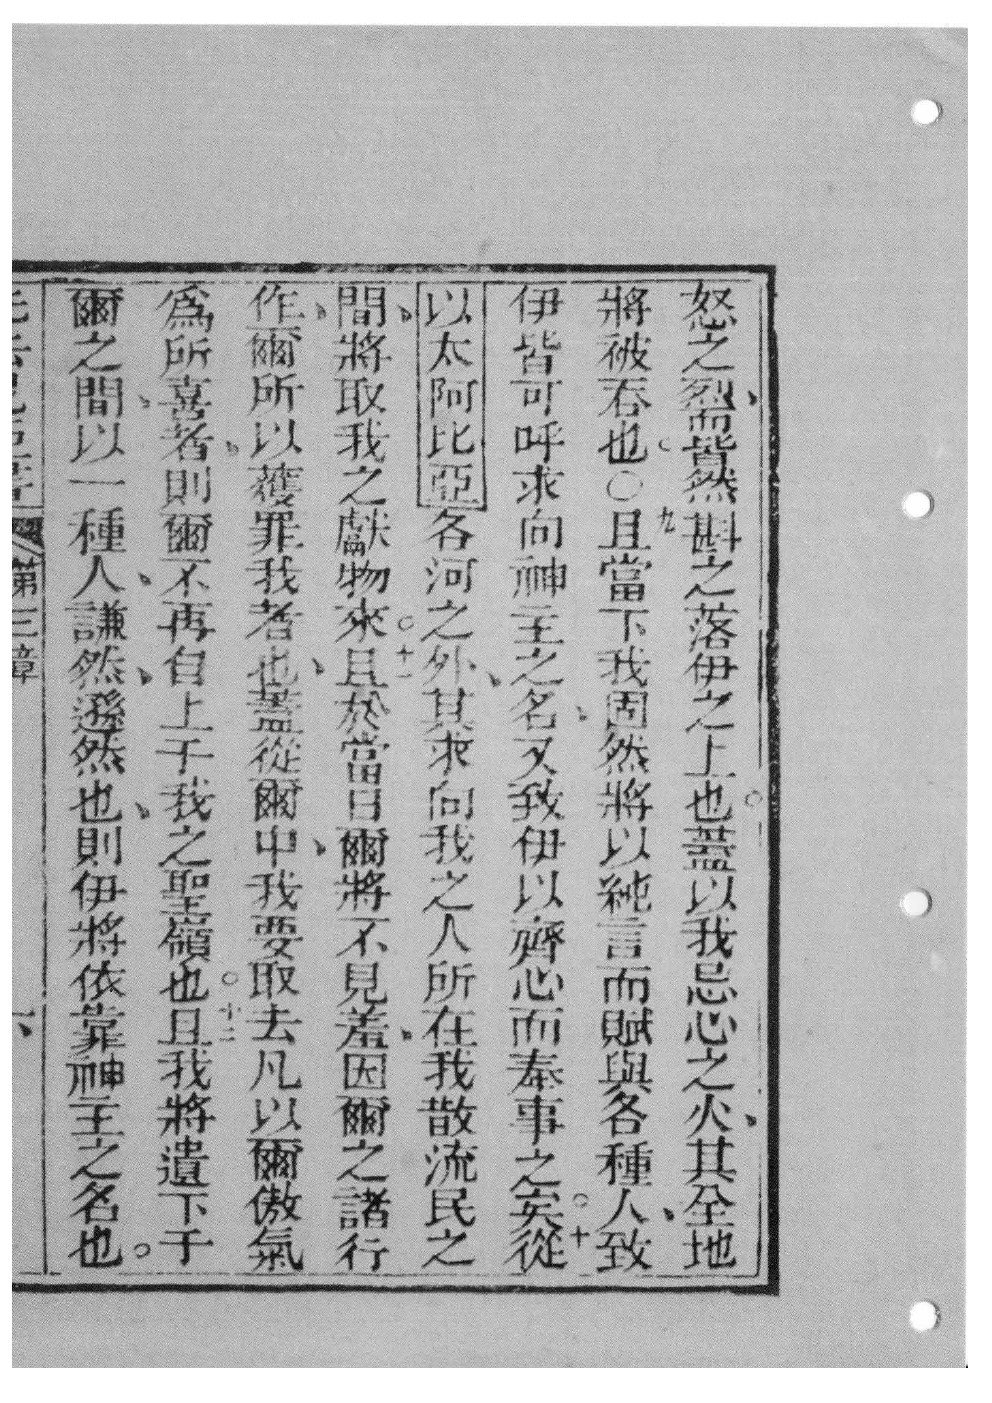 怒之烈、而皆然斟之落伊之上也。蓋以我忌心之火、其全地
將被吞也。○九且當下我固然將以純言而賦與各種人、致
伊皆可呼求向神主之名、又致伊以齊心而奉事之矣。十從
以太阿比亞各河之外、其求向我之人所在我散流民之
間、將取我之獻物來。十一且於當日爾將不見羞、因爾之諸行
作、爾所以獲罪我者也、蓋從爾中、我要取去凡以爾傲氣
爲所喜者、則爾不再自上于我之聖嶺也。十二且我將遺下于
爾之間、以一種人、謙然、遜然也、則伊將依靠神主之名也。
第三章 六